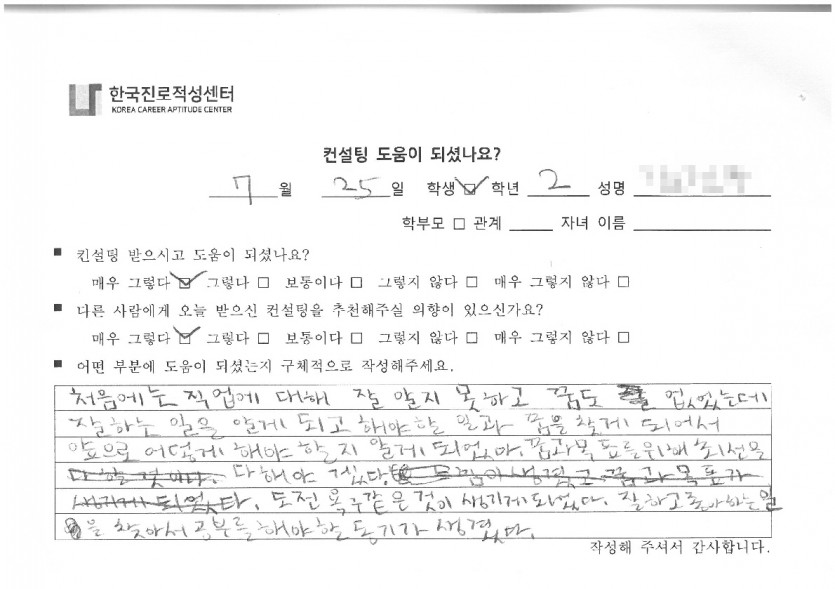 한국진로적성센터
KOREA CAREER APTITUDE CENTER
컨설팅 도움이 되셨나요?
7 월 25 일 학생 ☑ 학년 2 성명
학부모 □ 관계 자녀 이름
■ 컨설팅 받으시고 도움이 되셨나요?
매우 그렇다 ☑ 그렇다 □ 보통이다 □ 그렇지 않다 □ 매우 그렇지 않다 □
■ 다른 사람에게 오늘 받으신 컨설팅을 추천해주실 의향이 있으신가요?
매우 그렇다 ☑ 그렇다 □ 보통이다 □ 그렇지 않다 □ 매우 그렇지 않다 □
■ 어떤 부분에 도움이 되셨는지 구체적으로 작성해주세요.
처음에는 직업에 대해 잘 알지 못하고 꿈도 없었는데
잘하는 일을 알게 되고 해야할 일과 꿈을 찾게 되어서
앞으로 어떻게 해야 할지 알게 되었다. 꿈과 목표를 위해 최선을
다 할 것이다. 다해야 겠다. 생겼고 꿈과 목표가
생기게 되었다. 도전 욕구같은 것이 생기게 되었다. 잘하고 좋아하는 일
을 찾아서 공부를 해야할 동기가 생겼다.
작성해 주셔서 감사합니다.